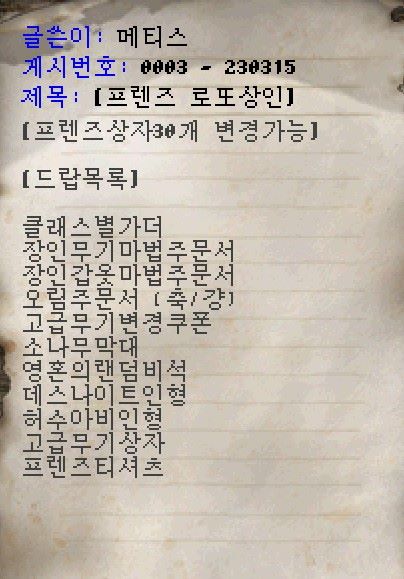 글쓴이: 메티스
게시번호: 0003 - 230315
제목: [프렌즈 로또상인]
[프렌즈상자30개 변경가능]
[드랍목록]
클래스별가더
장인무기마법주문서
장인갑옷마법주문서
오림주문서 [축/걍]
고급무기변경쿠폰
소나무막대
영혼의랜덤비석
데스나이트인형
허수아비인형
고급무기상자
프렌즈티셔츠